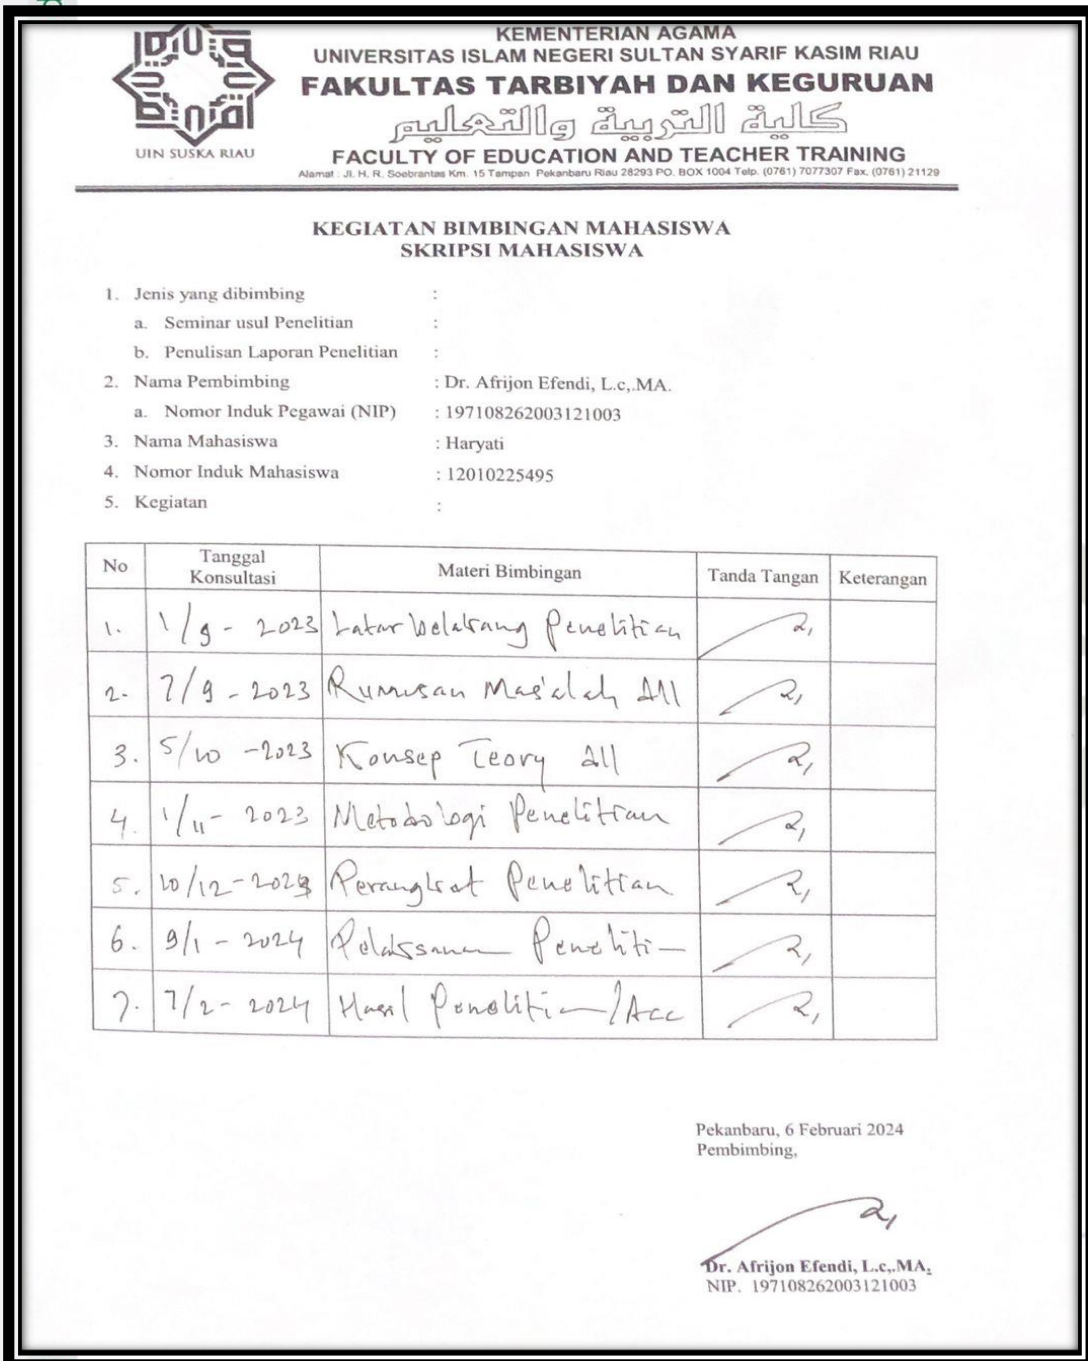 KEMENTERIAN AGAMA
UNIVERSITAS ISLAM NEGERI SULTAN SYARIF KASIM RIAU
FAKULTAS TARBIYAH DAN KEGURUAN
كلية التربية والتعليم
FACULTY OF EDUCATION AND TEACHER TRAINING
Alamat : Jl. H. R. Soebrantas Km. 15 Tampan Pekanbaru Riau 28293 PO. BOX 1004 Telp. (0761) 7077307 Fax. (0761) 21129
UIN SUSKA RIAU
KEGIATAN BIMBINGAN MAHASISWA
SKRIPSI MAHASISWA
1. Jenis yang dibimbing :
a. Seminar usul Penelitian :
b. Penulisan Laporan Penelitian :
2. Nama Pembimbing : Dr. Afrijon Efendi, L.c,.MA.
a. Nomor Induk Pegawai (NIP) : 197108262003121003
3. Nama Mahasiswa : Haryati
4. Nomor Induk Mahasiswa : 12010225495
5. Kegiatan :
No Tanggal Konsultasi Materi Bimbingan Tanda Tangan Keterangan
1. 1/9 - 2023 Latar belakang Penelitian
2. 7/9 - 2023 Rumusan Mas'alah dll
3. 5/10 - 2023 Konsep Teory dll
4. 1/11 - 2023 Metodologi Penelitian
5. 10/12 - 2023 Perangkat Penelitian
6. 9/1 - 2024 Pelaksanaan Penelitian
7. 7/2 - 2024 Hasil Penelitian/Acc
Pekanbaru, 6 Februari 2024
Pembimbing,
Dr. Afrijon Efendi, L.c,.MA.
NIP. 197108262003121003